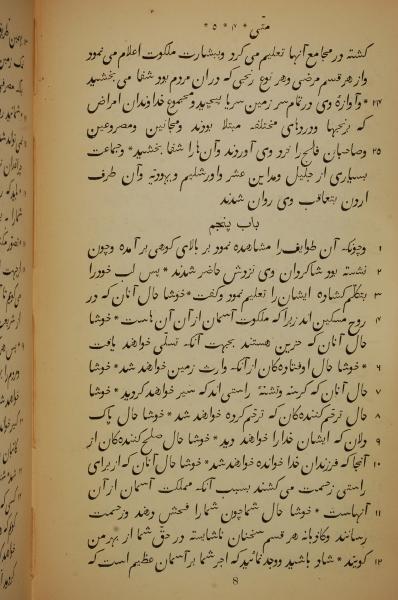 متی * ۴ * ۵ *
کشته در مجامع آنها تعلیم می کرد و ببشارت ملکوت اعلام می نمود
و از هر قسم مرضی و هر نوع رنجی که در ان مردم بود شفا می بخشید
۲۴ * و آوازهٔ وی در تمام سر زمین سریا پیچید و مجموع خداوندان امراض
که برنجها و دردهای مختلفه مبتلا بودند و مجانین و مصروعین
۲۵ و صاحبان فالج را نزد وی آوردند و آن ها را شفا بخشید * و جماعت
بسیاری از جلیل و مداین عشر و اورشلیم و یهودیه و آن طرف
اردن بتعاقب وی روان شدند
باب پنجم
۱ و چونکه آن طوایف را مشاهده نمود بر بالای کوهی بر آمده و چون
۲ نشسته بود شاکردان وی نزدش حاضر شدند * پس لب خود را
۳ بتکلم کشاده ایشان را تعلیم نمود و کفت * خوشا حال آنان که در
۴ روح مسکین اند زیرا که ملکوت آسمان از آن آن هاست * خوشا
حال آنان که حزین هستند بجهت آنکه تسلی خواهند یافت
۶ * خوشا حال اوفتاده کان از آنکه وارث زمین خواهند شد * خوشا
۷ حال آنان که کرسنه و تشنهٔ راستی اند که سیر خواهند کردید * خوشا
۸ حال ترحم کننده کان که ترحم کرده خواهند شد * خوشا حال پاک
۹ دلان که ایشان خدا را خواهند دید * خوشا حال صلح کننده کان از
۱۰ آنجا که فرزندان خدا خوانده خواهند شد * خوشا حال آنان که از برای
راستی زحمت می کشند بسبب آنکه مملکت آسمان از آن
۱۱ آنهاست * خوشا حال شما چون شما را فحش دهند و زحمت
رسانند و کاذبانه هر قسم سخنان ناشایسته در حق شما از بهر من
۱۲ کویند * شاد باشید و وجد نمائید که اجر شما بر آسمان عظیم است که
8